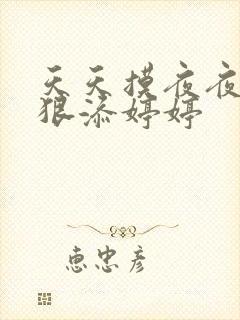 天天摸夜夜
狠添婷婷
惠忠彦